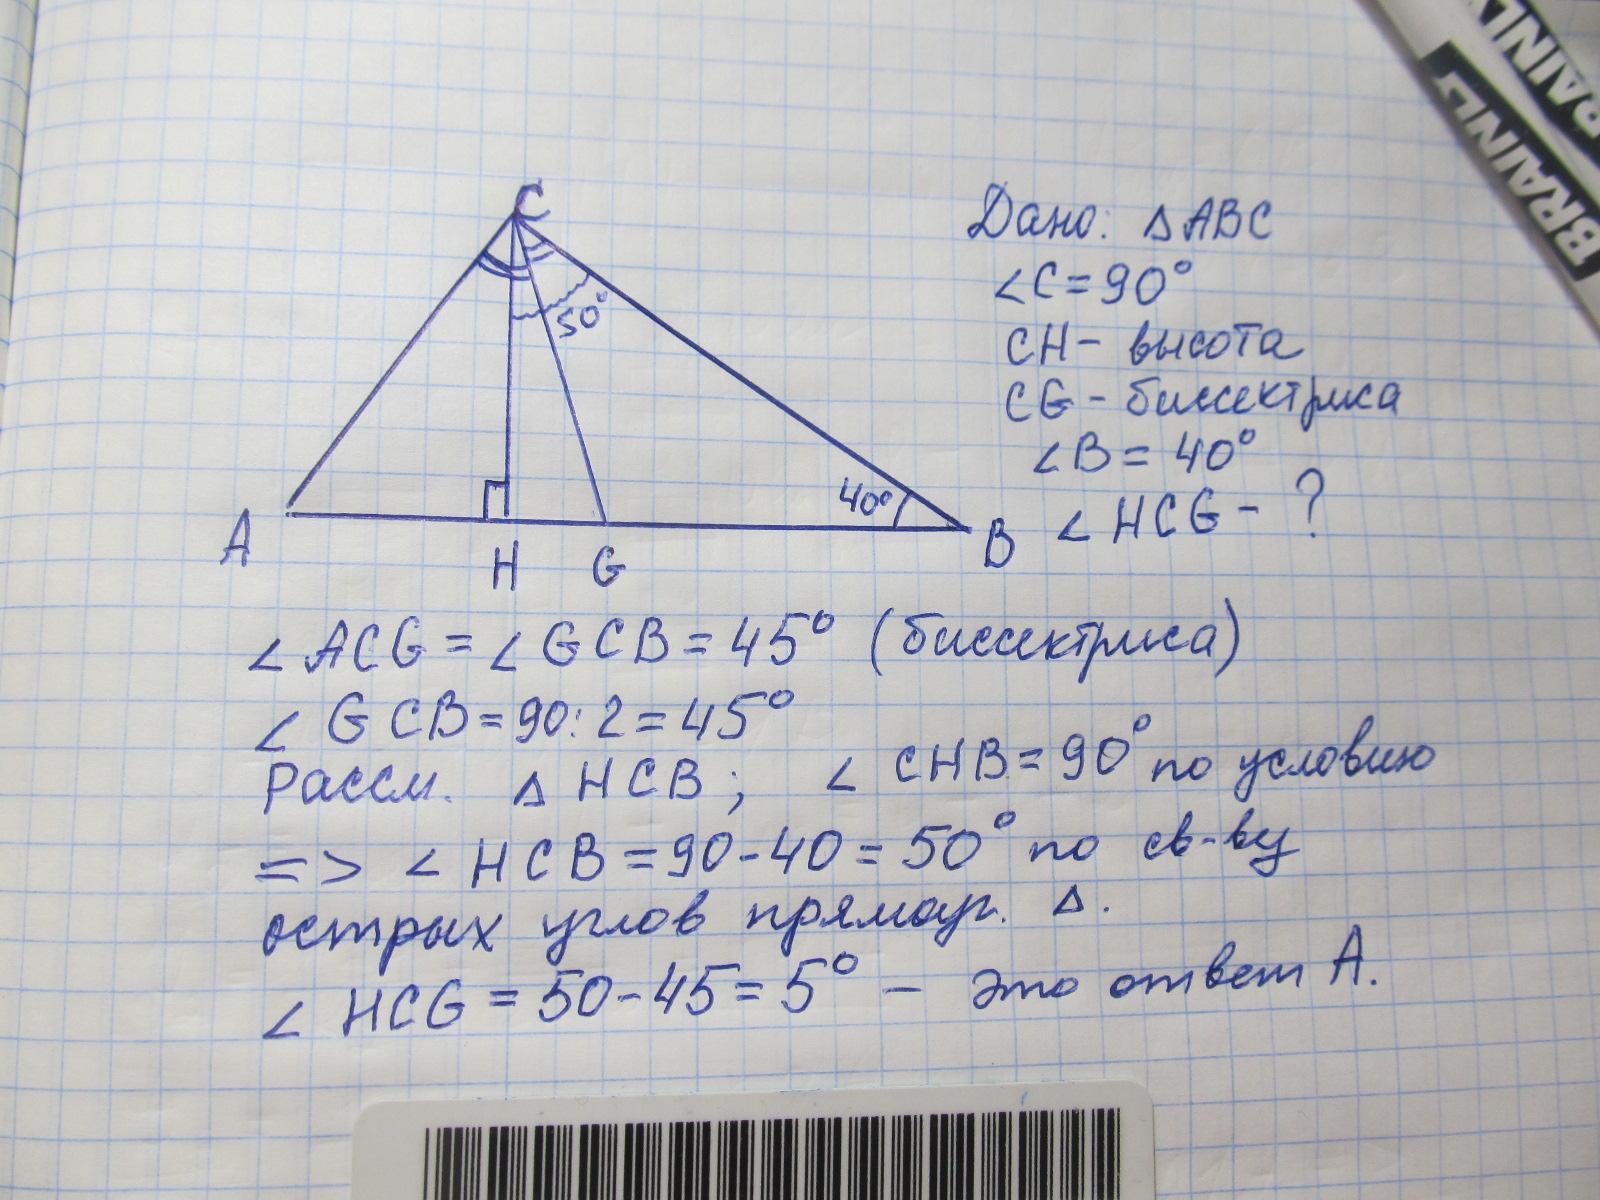 BRAINLY
RAINLY
C
50°
40°
A
H
G
B
Дано: △ABC
∠C=90°
CH- высота
CG- биссектриса
∠B= 40°
∠HCG- ?
∠ACG = ∠GCB = 45° (биссектриса)
∠GCB=90:2=45°
Рассм. △HCB; ∠CHB=90° по условию
=> ∠HCB=90-40=50° по св-ву
острых углов прямоуг. △.
∠HCG = 50-45=5° - это ответ А.